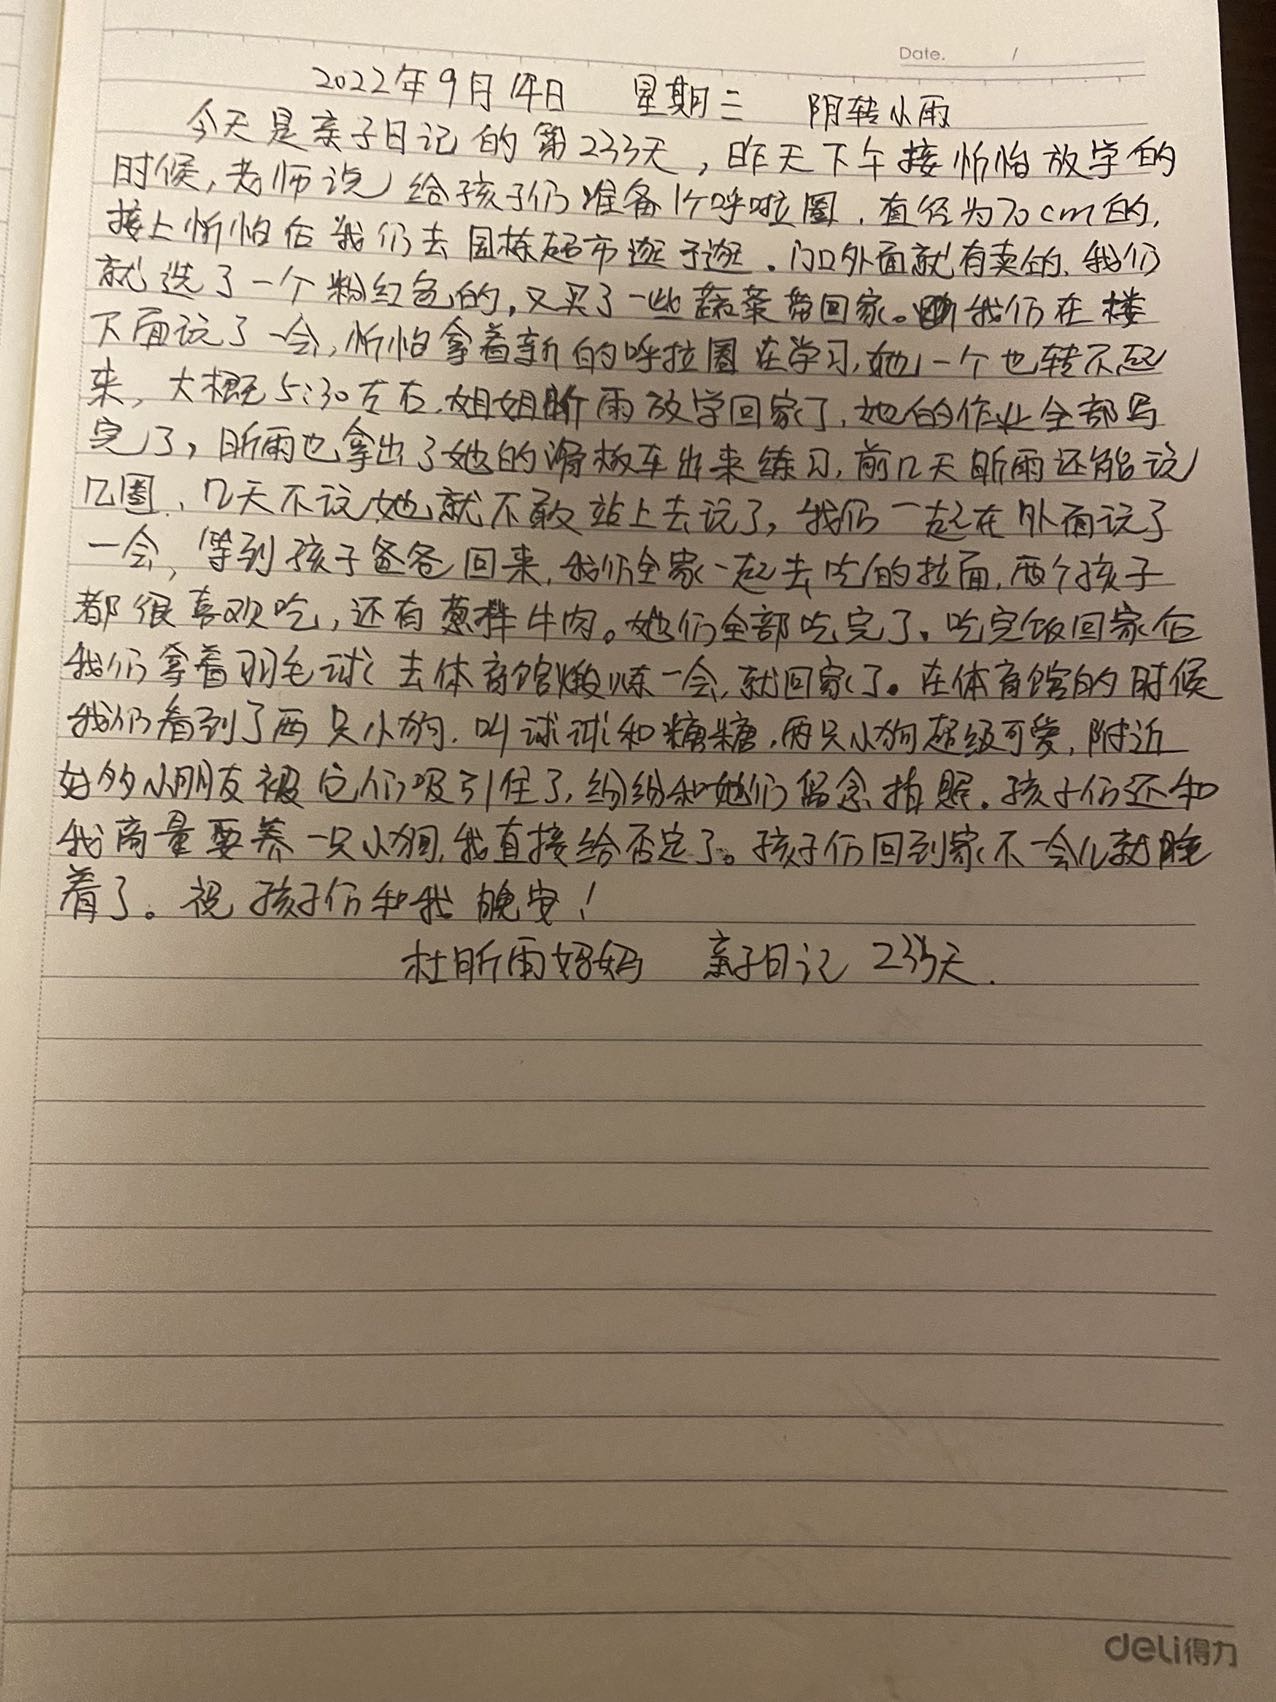 Date. /
2022年9月14日 星期三 阴转小雨
今天是亲子日记的第233天，昨天下午接忻怡放学的
时候，老师说给孩子们准备1个呼啦圈，直径为70cm的，
接上忻怡后我们去国栋超市逛了逛。门口外面就有卖的，我们
就选了一个粉红色的，又买了一些蔬菜带回家。我们在楼
下面玩了一会，忻怡拿着新的呼拉圈在学习，她一个也转不起
来，大概5:30左右，姐姐昕雨放学回家了，她的作业全部写
完了，昕雨也拿出了她的滑板车出来练习，前几天昕雨还能玩
几圈，几天不玩她就不敢站上去玩了，我们一起在外面玩了
一会，等到孩子爸爸回来，我们全家一起去吃的拉面，两个孩子
都很喜欢吃，还有葱拌牛肉。她们全部吃完了。吃完饭回家后
我们拿着羽毛球去体育馆锻炼一会，就回家了。在体育馆的时候
我们看到了两只小狗，叫球球和糖糖，两只小狗超级可爱，附近
好多小朋友被它们吸引住了，纷纷和她们留念拍照。孩子们还和
我商量要养一只小狗，我直接给否定了。孩子们回到家不一会儿就睡
着了。祝孩子们和我晚安！
杜昕雨妈妈 亲子日记 233天.
deli得力